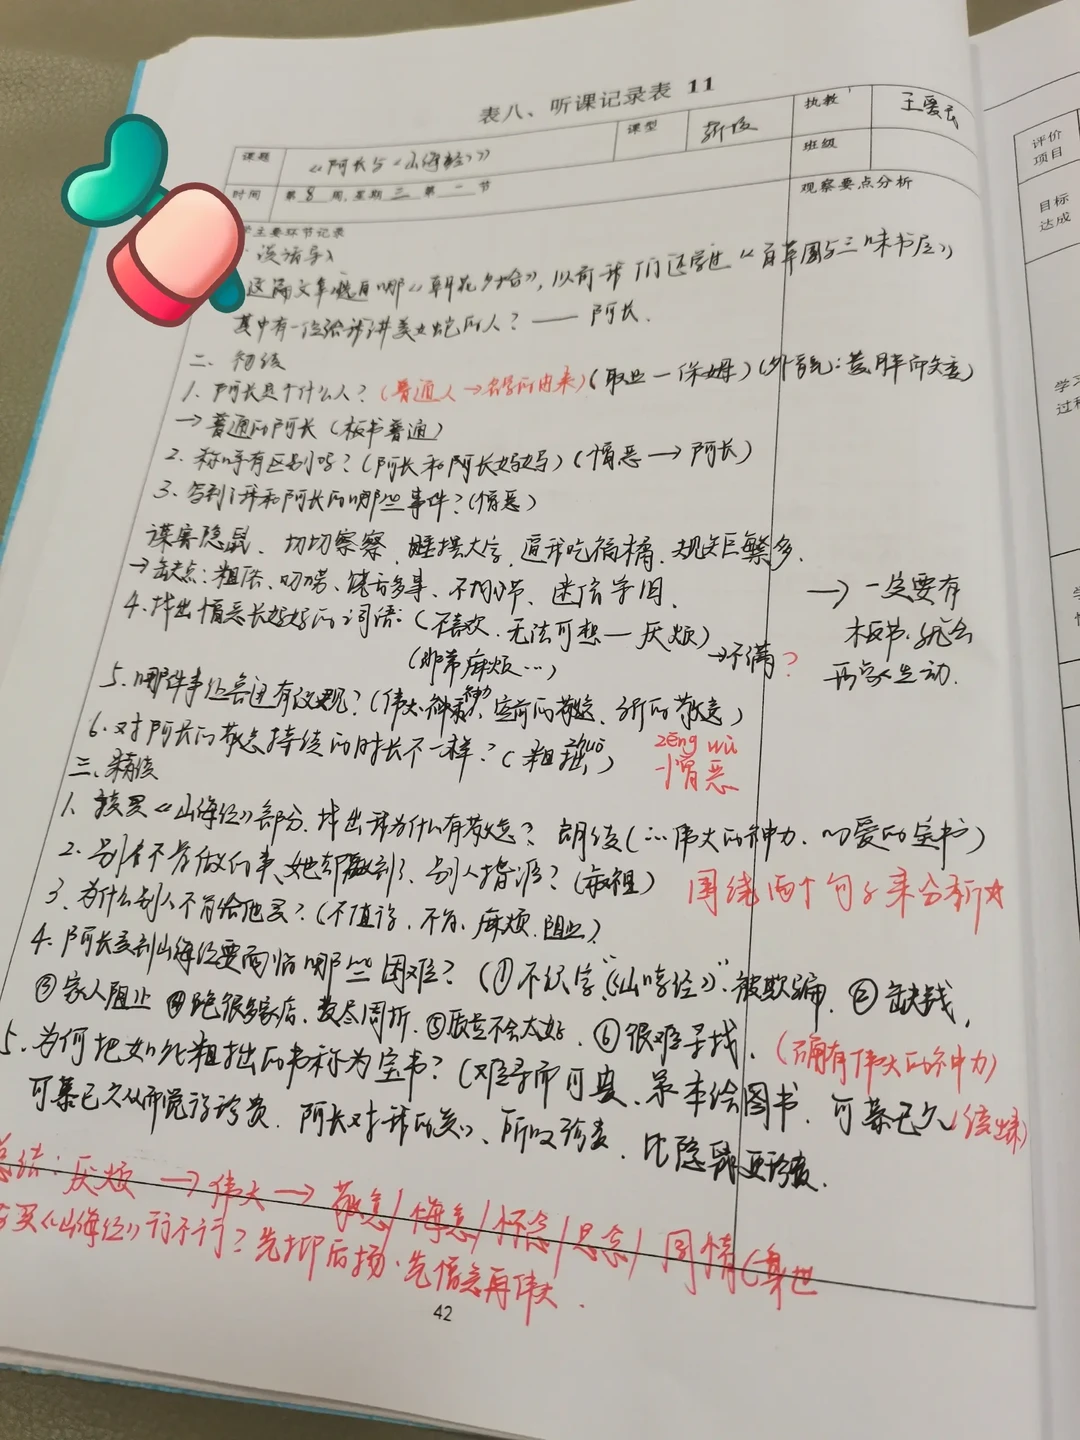 表八、听课记录表 11
课题 《阿长与《山海经》》 课型 新授 执教 王爱云
时间 第 8 周,星期 三 第 一 节 班级
学主要环节记录 观察要点分析
谈话导入
这篇文章选自哪《朝花夕拾》,以前我们还学过《百草园与三味书屋》
其中有一位给我讲美女蛇的人?—— 阿长.
二、初读
1、阿长是个什么人?(普通人→名字的由来)(职业—保姆)(外貌:黄胖而矮)
→普通的阿长(板书普通)
2、称呼有区别吗?(阿长和阿长妈妈)(憎恶→阿长)
3、写到了我和阿长的哪些事件?(憎恶)
谋害隐鼠、切切察察、睡摆大字、逼我吃福橘、规矩繁多.
→缺点:粗俗、唠叨、饶舌多事、不拘小节、迷信守旧.
4、找出憎恶长妈妈的词语:(不喜欢、无法可想—厌烦)
(非常麻烦…)→不满?
→一定要有
板书,
再家生动.
5、哪件事让我还有改观?(伟大神力、空前的敬意、新的敬意)
6、对阿长的敬意持续的时长不一样?(粗拙zhuō)
zēng wù
憎恶
三、精读
1、读买《山海经》部分,找出我为什么有敬意?朗读(…伟大的神力、心爱的宝书)
2、别人不肯做的事,她却做到了、别人指谁?(叔祖)
围绕两个句子来分析☆
3、为什么别人不肯给他买?(不值得、不肯、麻烦、阻止)
4、阿长买到山海经要面临哪些困难?(①不识字,“《山哼经》”.被欺骗 ②缺钱,
③家人阻止 ④跑很多家店、费尽周折.⑤态度不会太好.⑥很难寻找.
5、为何把如此粗拙的书称为宝书?(难寻而可贵、第一本绘图书、可慕已久(读出来)
(确有伟大的神力)
可慕已久从而觉得珍贵、阿长对我的关心、所以珍贵、比隐鼠更珍贵.
总结:厌烦→伟大→敬意/悔意/怀念/思念/同情(身世
买《山海经》行不行?先抑后扬.先憎恶再伟大.
42
评价
项目
目标
达成
学习
过程